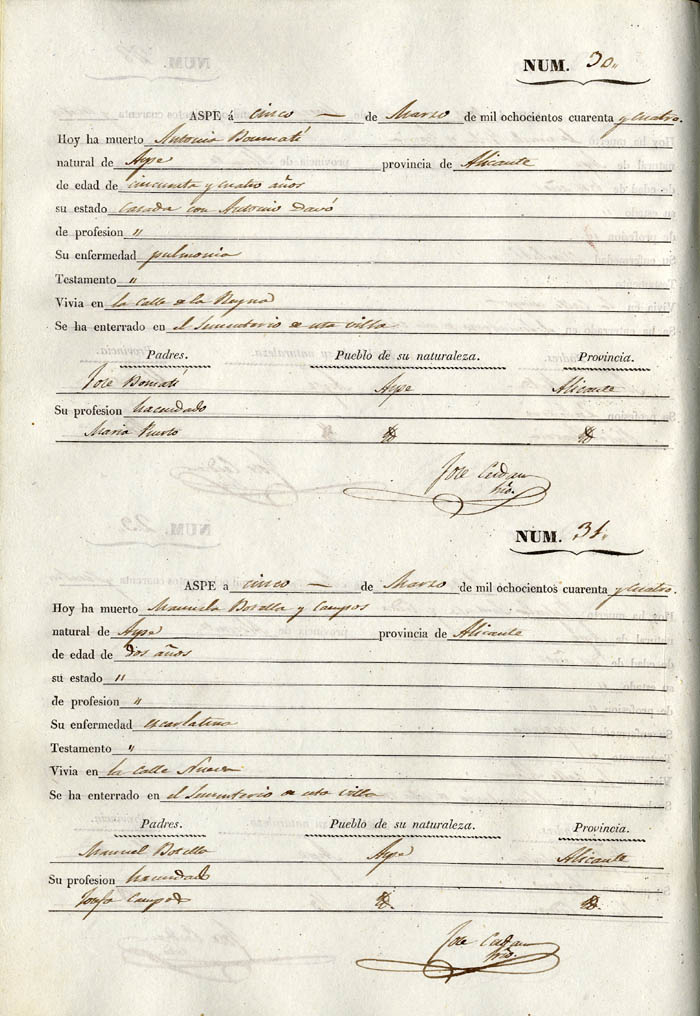 NUM. 30.
ASPE á cinco — de Marzo de mil ochocientos cuarenta y cuatro.
Hoy ha muerto Antonia Boumatí
natural de Aspe provincia de Alicante
de edad de cincuenta y cuatro años
su estado casada con Antonio Davó
de profesion "
Su enfermedad pulmonia
Testamento "
Vivia en la calle de la Reyna
Se ha enterrado en el Sementerio de esta villa
Padres. Pueblo de su naturaleza. Provincia.
José Bomatí Aspe Alicante
Su profesion hacendado
Maria Puerto
Jose Cerdan
NUM. 31.
ASPE a cinco — de Marzo de mil ochocientos cuarenta y cuatro.
Hoy ha muerto Manuela Botella y Campos
natural de Aspe provincia de Alicante
de edad de dos años
su estado "
de profesion "
Su enfermedad escarlatina
Testamento "
Vivia en la calle Nueva
Se ha enterrado en el Sementerio de esta villa
Padres. Pueblo de su naturaleza. Provincia.
Manuel Botella Aspe Alicante
Su profesion hacendado
Josefa Campos
Jose Cerdan